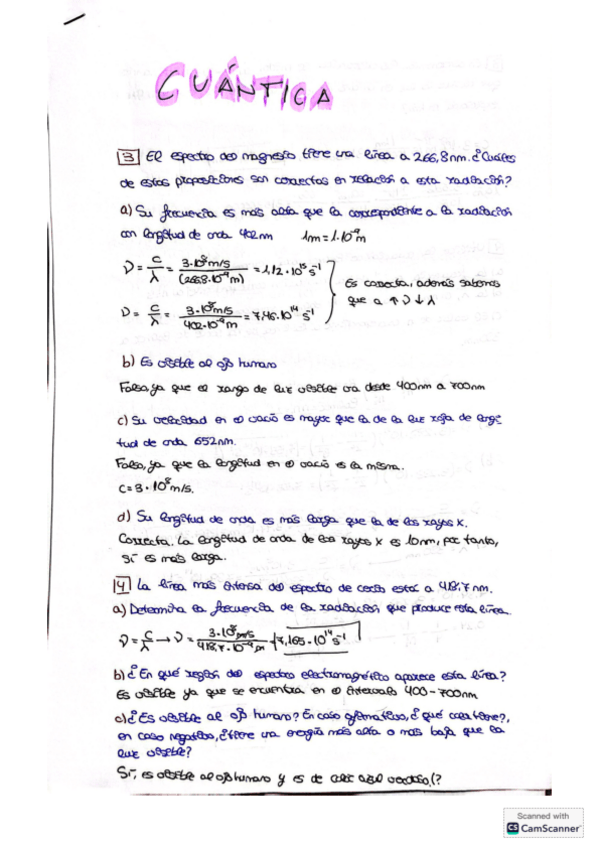 CUÁNTICA
3 El espectro del magnesio tiene una línea a 266,8 nm. ¿Cuáles
de estas proposiciones son correctas en relación a esta radiación?
a) Su frecuencia es más alta que la correspondiente a la radiación
con longitud de onda 402 nm 1m = 1·10⁻⁹ m
ν = c/λ = 3·10⁸ m/s / (266,8·10⁻⁹ m) = 1,12·10¹⁵ s⁻¹
ν = c/λ = 3·10⁸ m/s / 402·10⁻⁹ m = 7,46·10¹⁴ s⁻¹
Es correcta, además sabemos
que a ↑ν ↓λ
b) Es visible al ojo humano
Falsa, ya que el rango de luz visible va desde 400nm a 700nm
c) Su velocidad en el vacío es mayor que la de la luz roja de longi
tud de onda 652nm.
Falso, ya que la longitud en el vacío es la misma.
c = 3·10⁸ m/s.
d) Su longitud de onda es más larga que la de los rayos X.
Correcta. La longitud de onda de los rayos X es 10nm, por tanto,
sí es más larga.
14 La línea más intensa del espectro de cerio está a 418,7 nm.
a) Determina la frecuencia de la radiación que produce esta línea.
ν = c/λ → ν = 3·10⁸ m/s / 418,7·10⁻⁹ m = 7,165·10¹⁴ s⁻¹
b) ¿En qué región del espectro electromagnético aparece esta línea?
Es visible ya que se encuentra en el intervalo 400-700nm
c) ¿Es visible al ojo humano? En caso afirmativo, ¿qué color tiene?,
en caso negativo, ¿tiene una energía más alta o más baja que la
luz visible?
Sí, es visible al ojo humano y es de color azul verdoso, (?
Scanned with
CS CamScanner